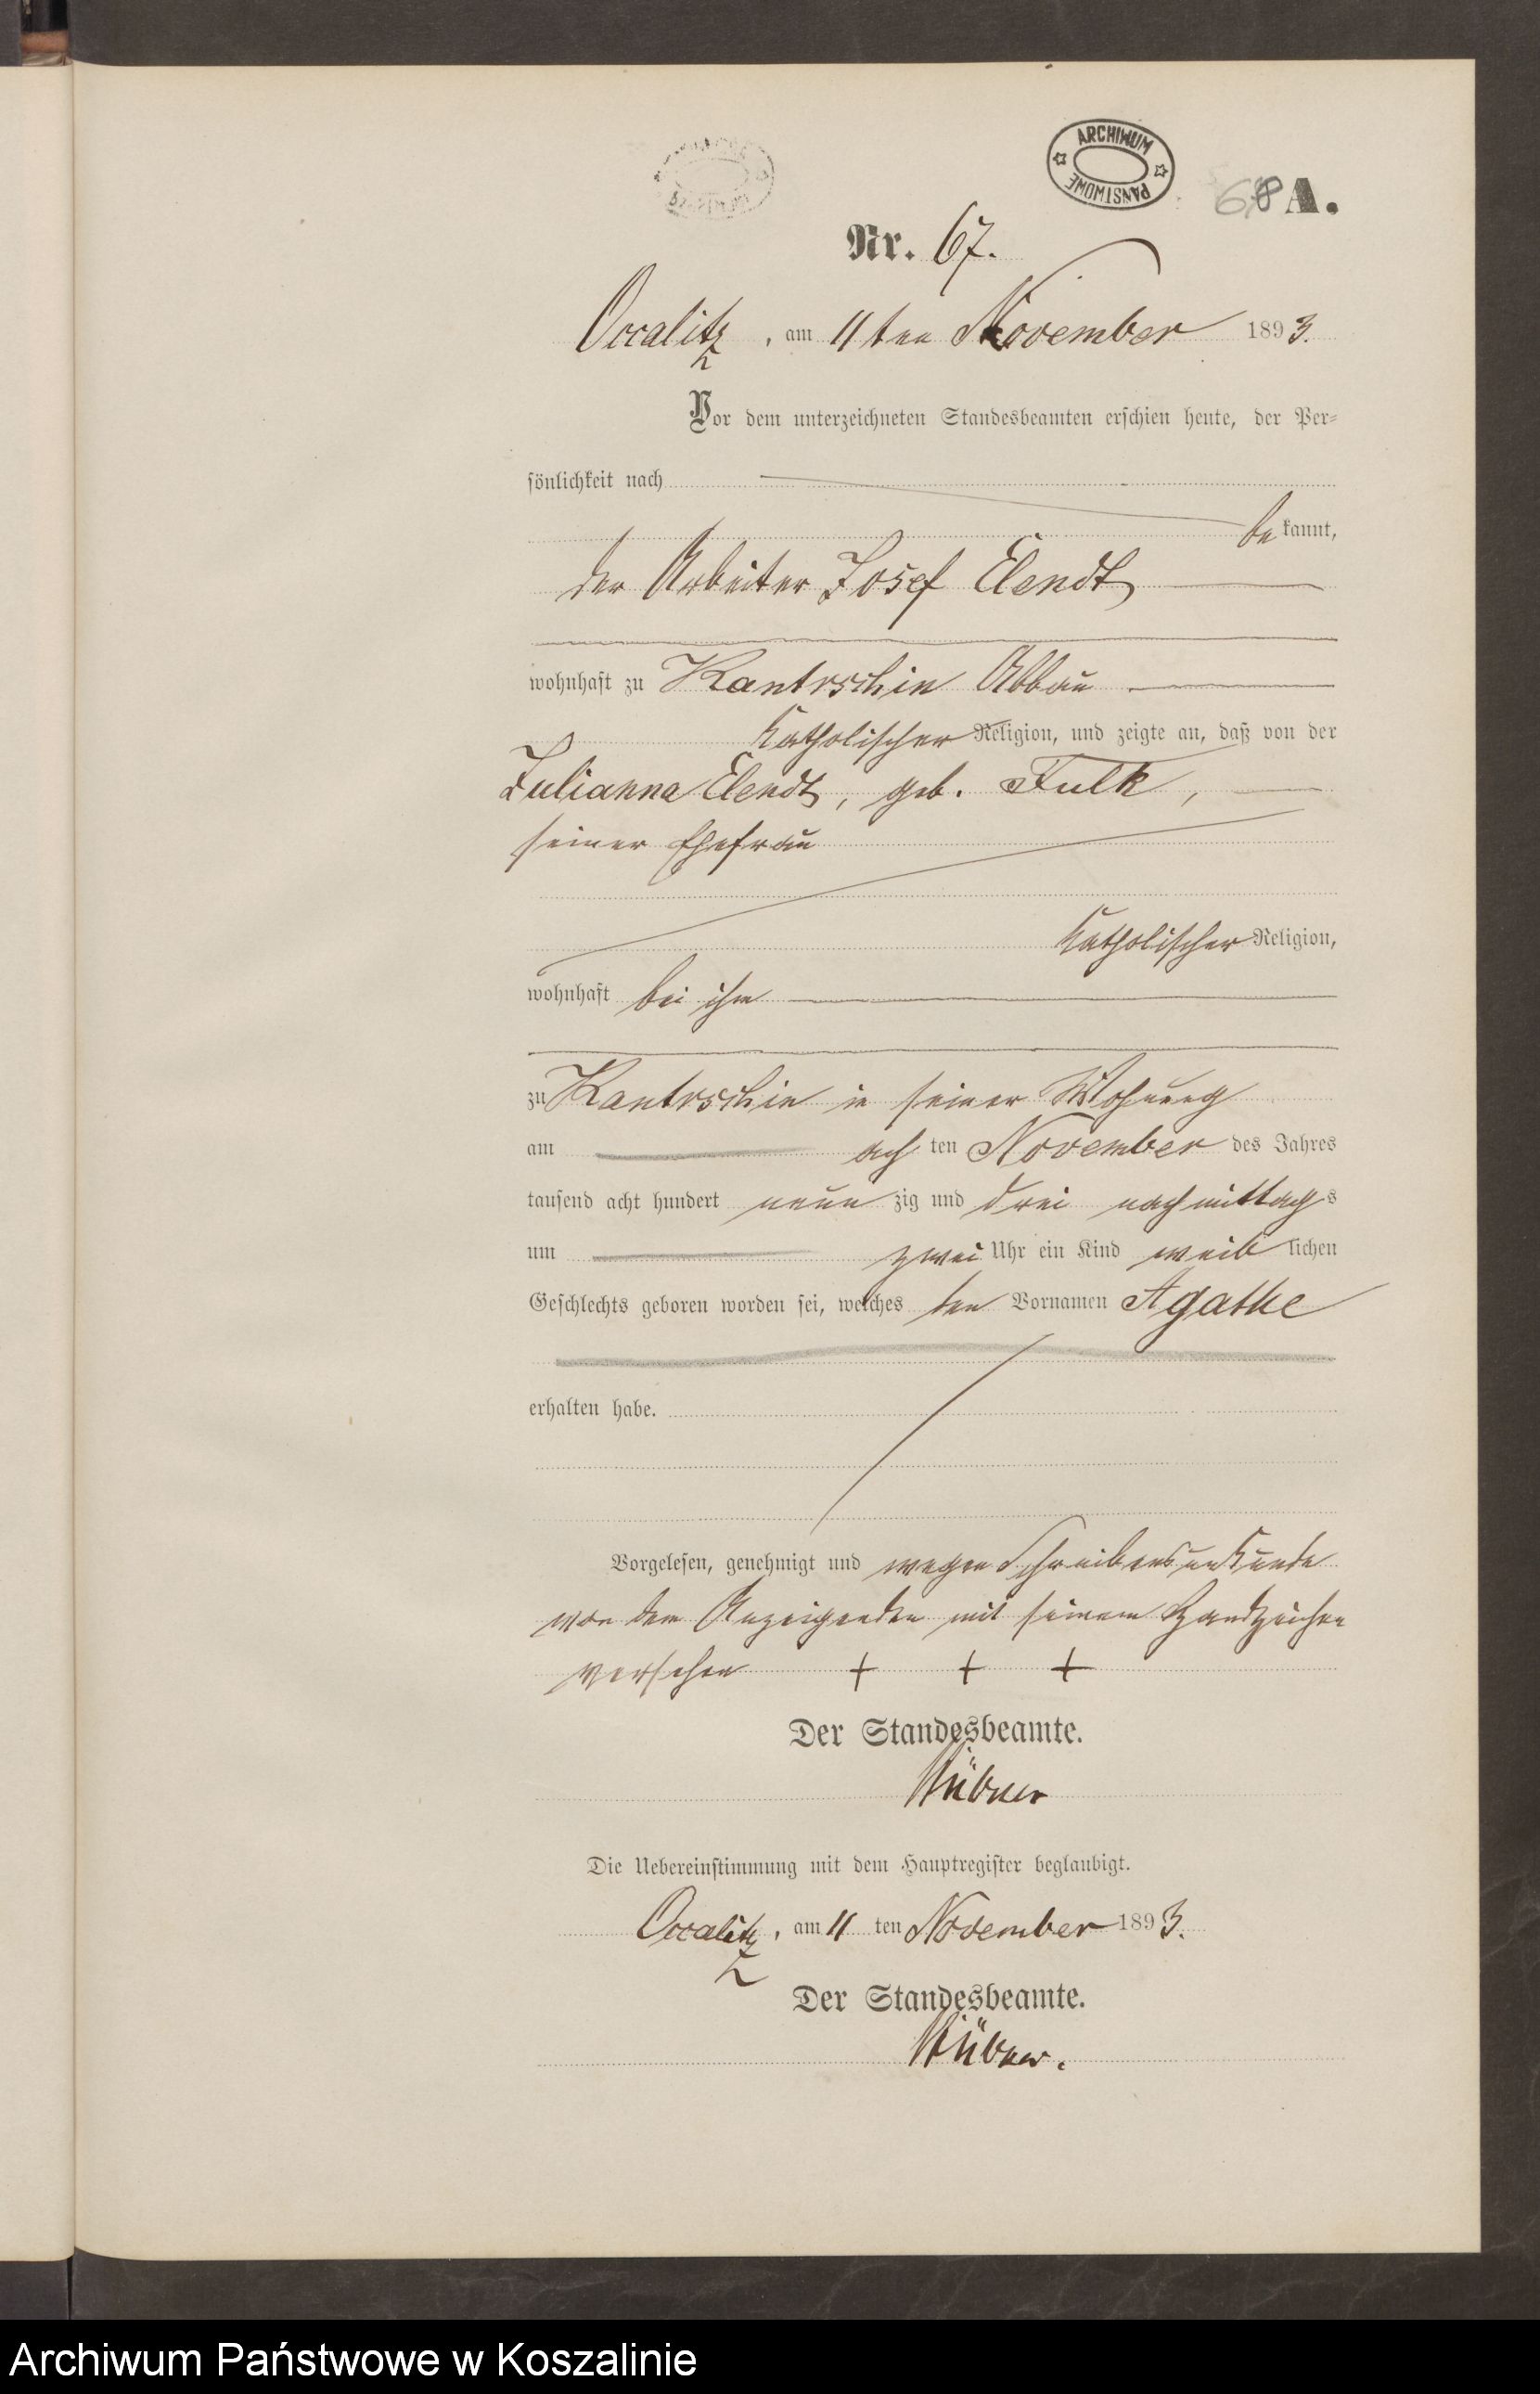 ARCHIWUM PAŃSTWOWE
68 A.
Nr. 67.
Occalitz, am 11ten November 1893.
Vor dem unterzeichneten Standesbeamten erschien heute, der Per-
sönlichkeit nach
bekannt,
der Arbeiter Josef Elendt
wohnhaft zu Kantrschin Abbau
katholischer Religion, und zeigte an, daß von der
Julianna Elendt, geb. Fulk,
seiner Ehefrau
katholischer Religion,
wohnhaft bei ihm
zu Kantrschin in seiner Wohnung
am achten November des Jahres
tausend acht hundert neunzig und drei nachmittags
um zwei Uhr ein Kind weiblichen
Geschlechts geboren worden sei, welches den Vornamen Agathe
erhalten habe.
Vorgelesen, genehmigt und wegen Schreibensunkunde
von dem Anzeigenden mit seinem Handzeichen
versehen + + +
Der Standesbeamte.
Hübner
Die Uebereinstimmung mit dem Hauptregister beglaubigt.
Occalitz, am 11ten November 1893.
Der Standesbeamte.
Hübner.
Archiwum Państwowe w Koszalinie